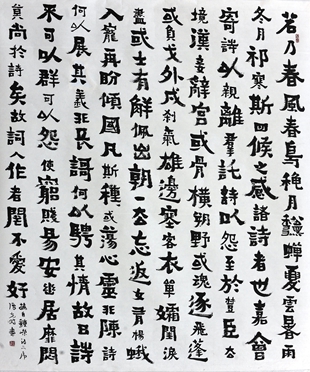 若乃春風春鳥秋月秋蟬夏雲暑雨
冬月祁寒斯四候之感諸詩者也嘉會
寄詩以親離羣託詩以怨至於楚臣去
境漢妾辭宮或骨橫朔野或魂逐飛蓬
或負戈外戍殺氣雄邊塞客衣單孀閨淚
盡或士有解佩出朝一去忘返女有揚蛾
入寵再盼傾國凡斯種種感蕩心靈非陳詩
何以展其義非長歌何以騁其情故曰詩
可以群可以怨使窮賤易安幽居靡悶
莫尚於詩矣故詞人作者罔不愛好